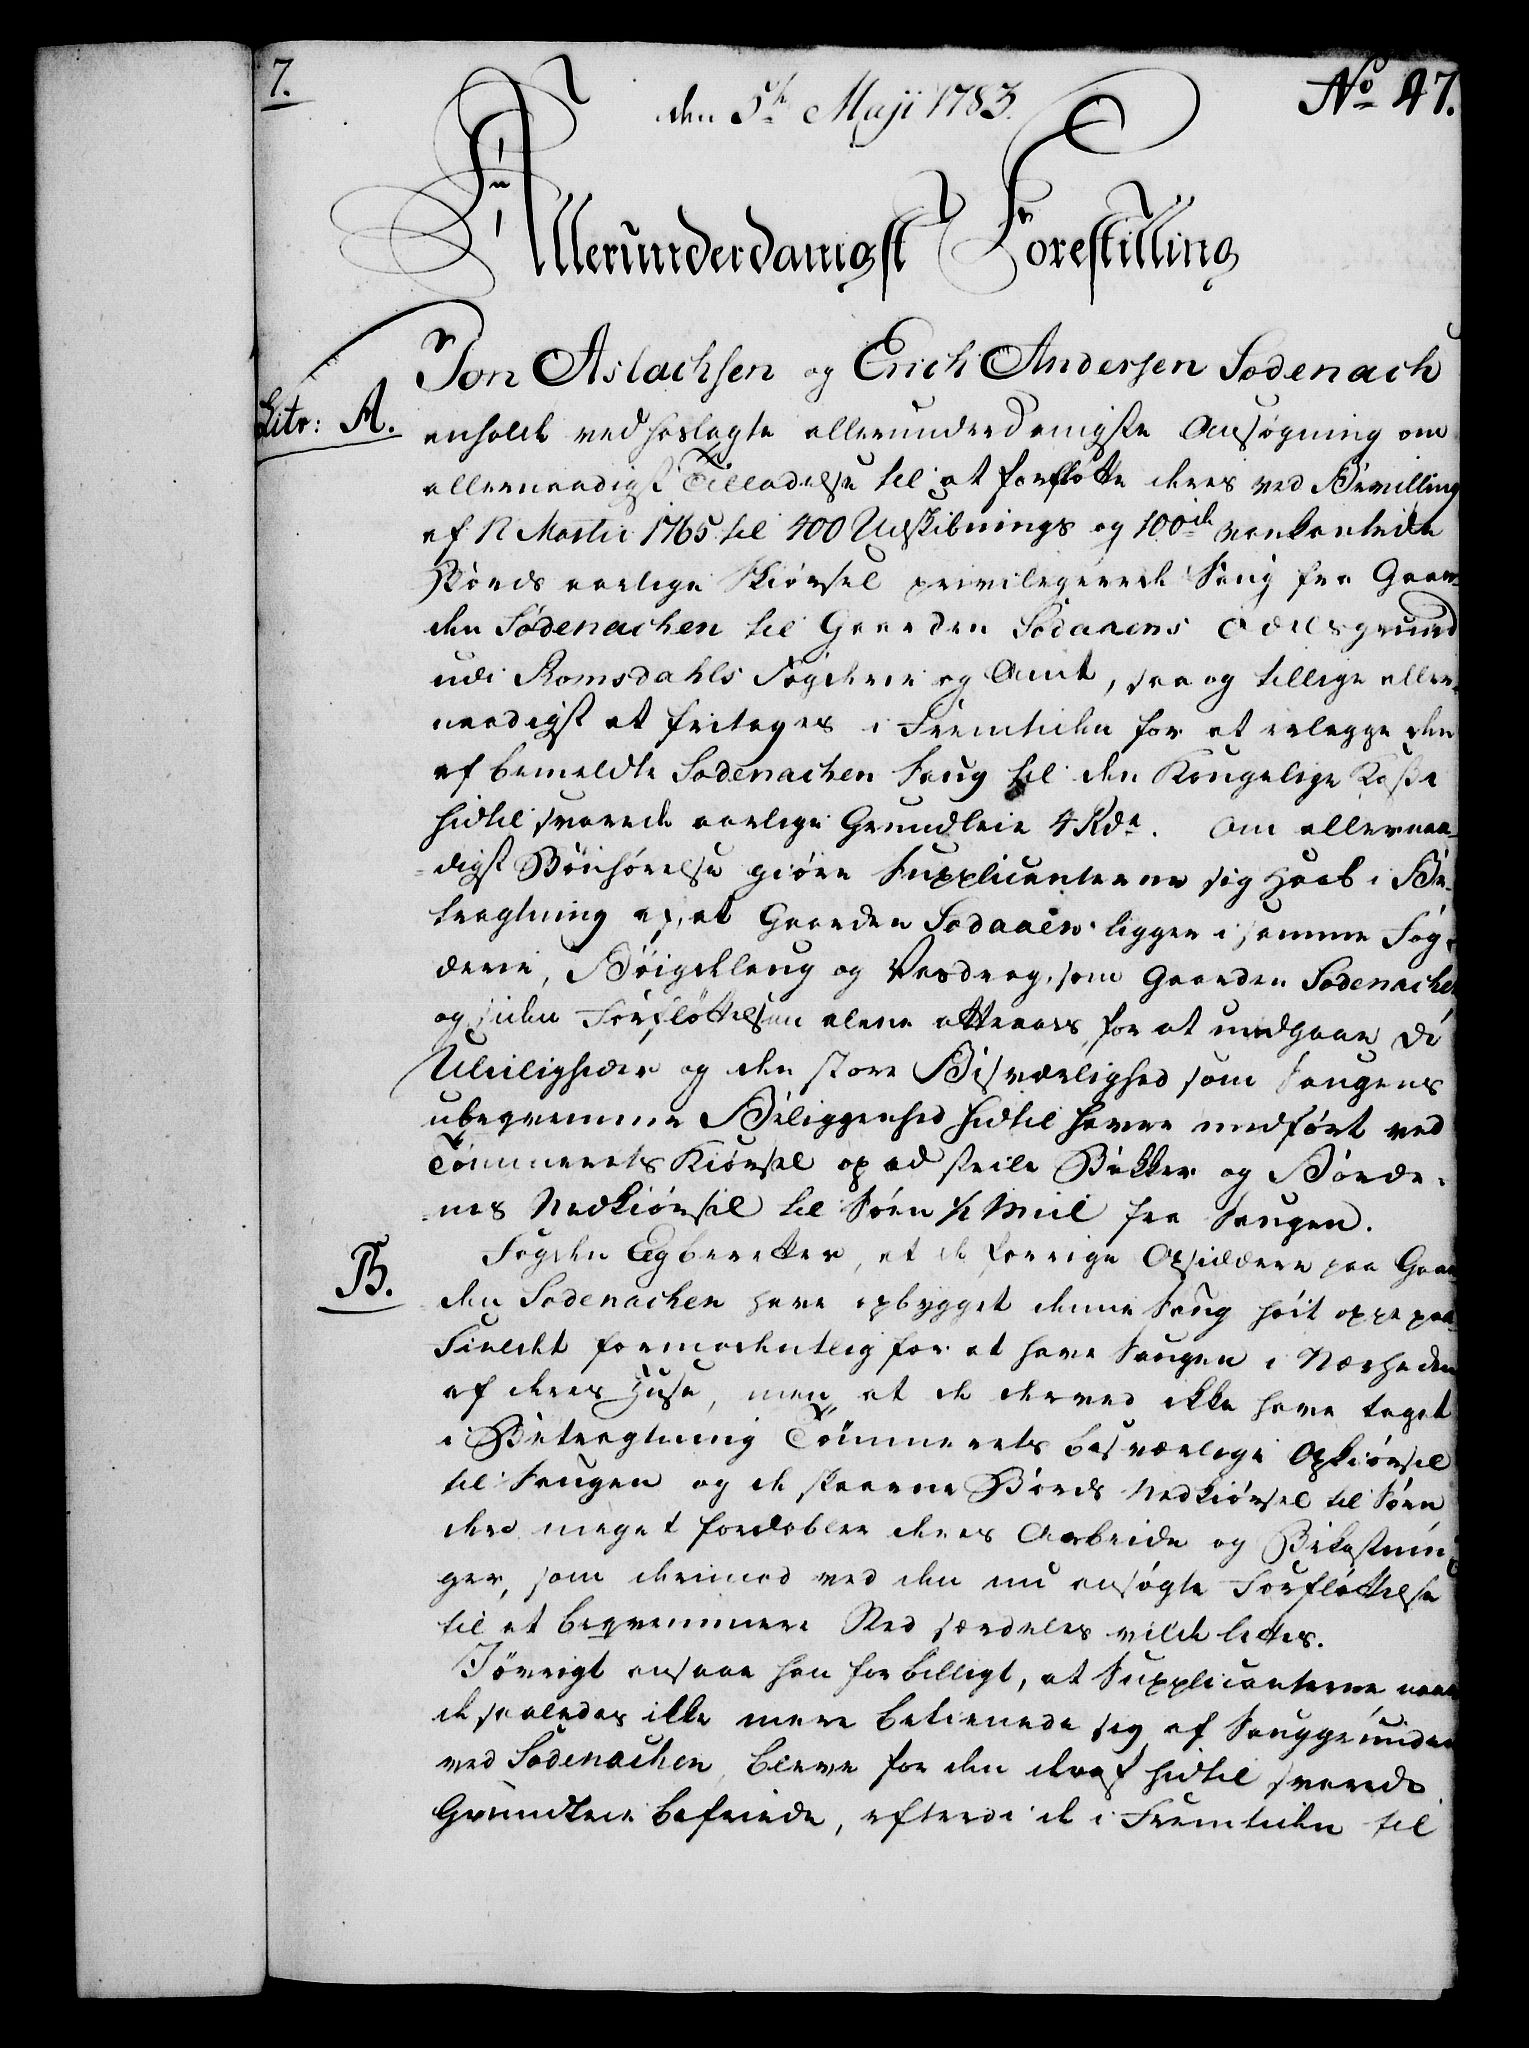 7.
den 5te Maji 1783.
No 47.
Allerunderdanigst Forestilling
Jon Aslachsen og Erich Andersen Sødenach
Litr: A.
anholde ved hoslagte allerunderdanigste Ansøgning om
allernaadigst Tilladelse til at forfløtte deres ved Bevilling
af 12 Martii 1765 til 400 Udskibnings og 100de vankantede
Bords aarlige Skiørsel privilegerede Saug fra Gaar-
den Sødenachen til Gaarden Sødaaens Odelsgrund
udi Romsdahls Fogderie og Amt, saa og tillige aller-
naadigst at fritages i Fremtiden for at erlegge den
af bemeldte Sødenachen Saug til den Kongelige Kasse
hidtil svarede aarlige Grundleie 4 Rdr. Om allernaa-
digst Bønhørelse giøre Supplicanterne sig Haab i Be-
tragtning af, at Gaarden Sødaaen ligger i samme Fog-
derie, Bøigdelaug og Vasdrag, som Gaarden Sødenachen
og siden Forfløttelsen alene attraaes, for at undgaae de
Uleiligheder og den store Besværlighed som Saugens
ubeqvemme Beliggenhed hidtil haver medført ved
Tømmerets Kiørsel op ad steile Bakker og Borde-
nes Nedkiørsel til Søen ½ Miil fra Saugen.
B.
Fogden Eeg beretter, at de forrige Opsiddere paa Gaar-
den Sødenachen have opbygget denne Saug høit oppe paa
Fieldet formodentlig for at have Saugen i Nærheden
af deres Huse, men at de derved ikke have taget
i Betragtning Tømmerets besværlige Opkiørsel
til Saugen og de skaarne Bords Nedkiørsel til Søen
der meget fordobler deres Arbeide og Bekostnin-
ger, som derimod ved den nu ansøgte Forfløttelse
til et beqvemmere Sted særdeles vilde lettes.
Iøvrigt ansaae han for billigt, at Supplicanterne naar
de saaledes ikke mere betienede sig af Sauggrunden
ved Sødenachen, bleve for den deraf hidtil svarede
Grundleie befriede, efterdi de i Fremtiden til